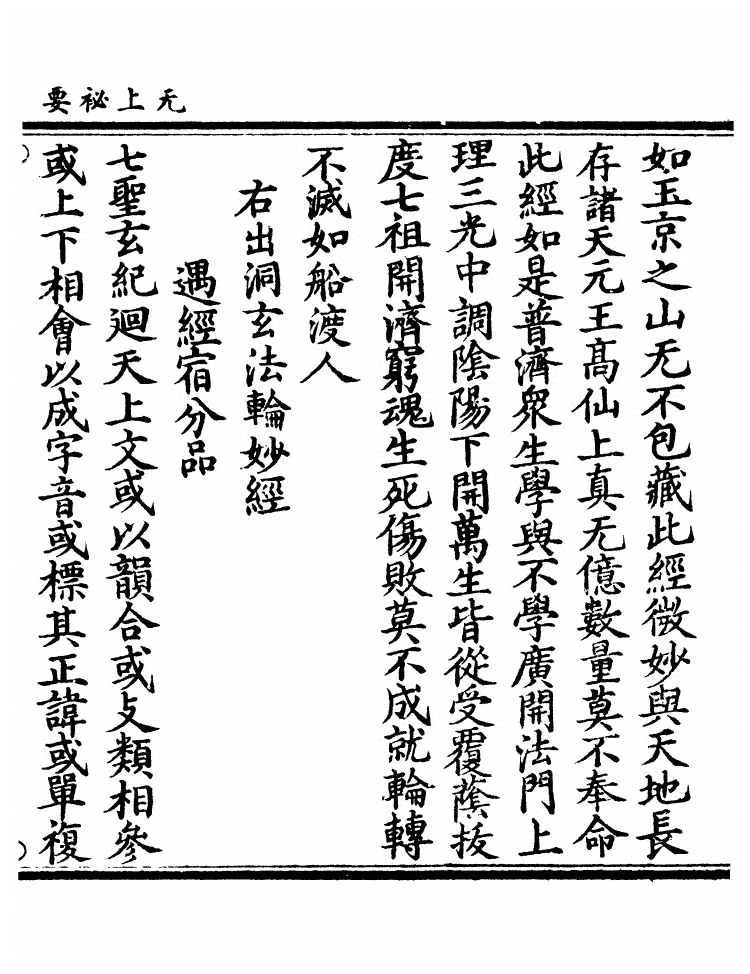 无上祕要
如玉京之山无不包藏此經微妙與天地長
存諸天元王髙仙上真无億數量莫不奉命
此經如是普濟衆生學與不學廣開法門上
理三光中調隂陽下開萬生皆從受覆蔭拔
度七祖開濟窮魂生死傷敗莫不成就輪轉
不滅如船渡人
右出洞玄法輪妙經
遇經宿分品
七聖玄紀迴天上文或以韻合或攴類相參
或上下相會以成字音或標其正諱或單複